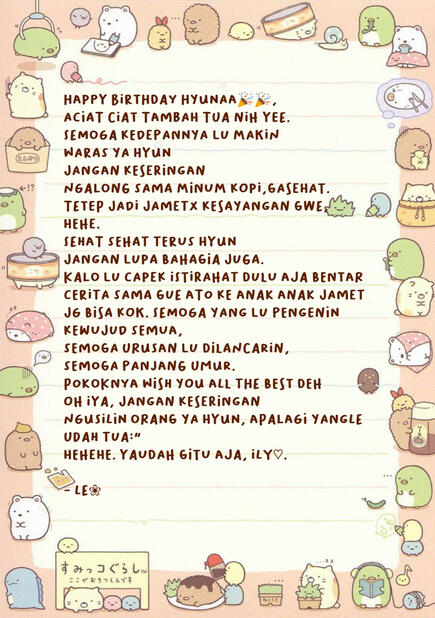 HAPPY BIRTHDAY HYUNAA🎉🎉,
ACIAT CIAT TAMBAH TUA NIH YEE.
SEMOGA KEDEPANNYA LU MAKIN
WARAS YA HYUN
JANGAN KESERINGAN
NGALONG SAMA MINUM KOPI,GASEHAT.
TETEP JADI JAMETX KESAYANGAN GWE,
HEHE.
SEHAT SEHAT TERUS HYUN
JANGAN LUPA BAHAGIA JUGA.
KALO LU CAPEK ISTIRAHAT DULU AJA BENTAR
CERITA SAMA GUE ATO KE ANAK ANAK JAMET
JG BISA KOK. SEMOGA YANG LU PENGENIN
KEWUJUD SEMUA,
SEMOGA URUSAN LU DILANCARIN,
SEMOGA PANJANG UMUR.
POKOKNYA WISH YOU ALL THE BEST DEH
OH IYA, JANGAN KESERINGAN
NGUSILIN ORANG YA HYUN, APALAGI YANGLE
UDAH TUA:"
HEHEHE. YAUDAH GITU AJA, ILY♡.
- LE❀
すみっコぐらし™
ここがおちつくんです